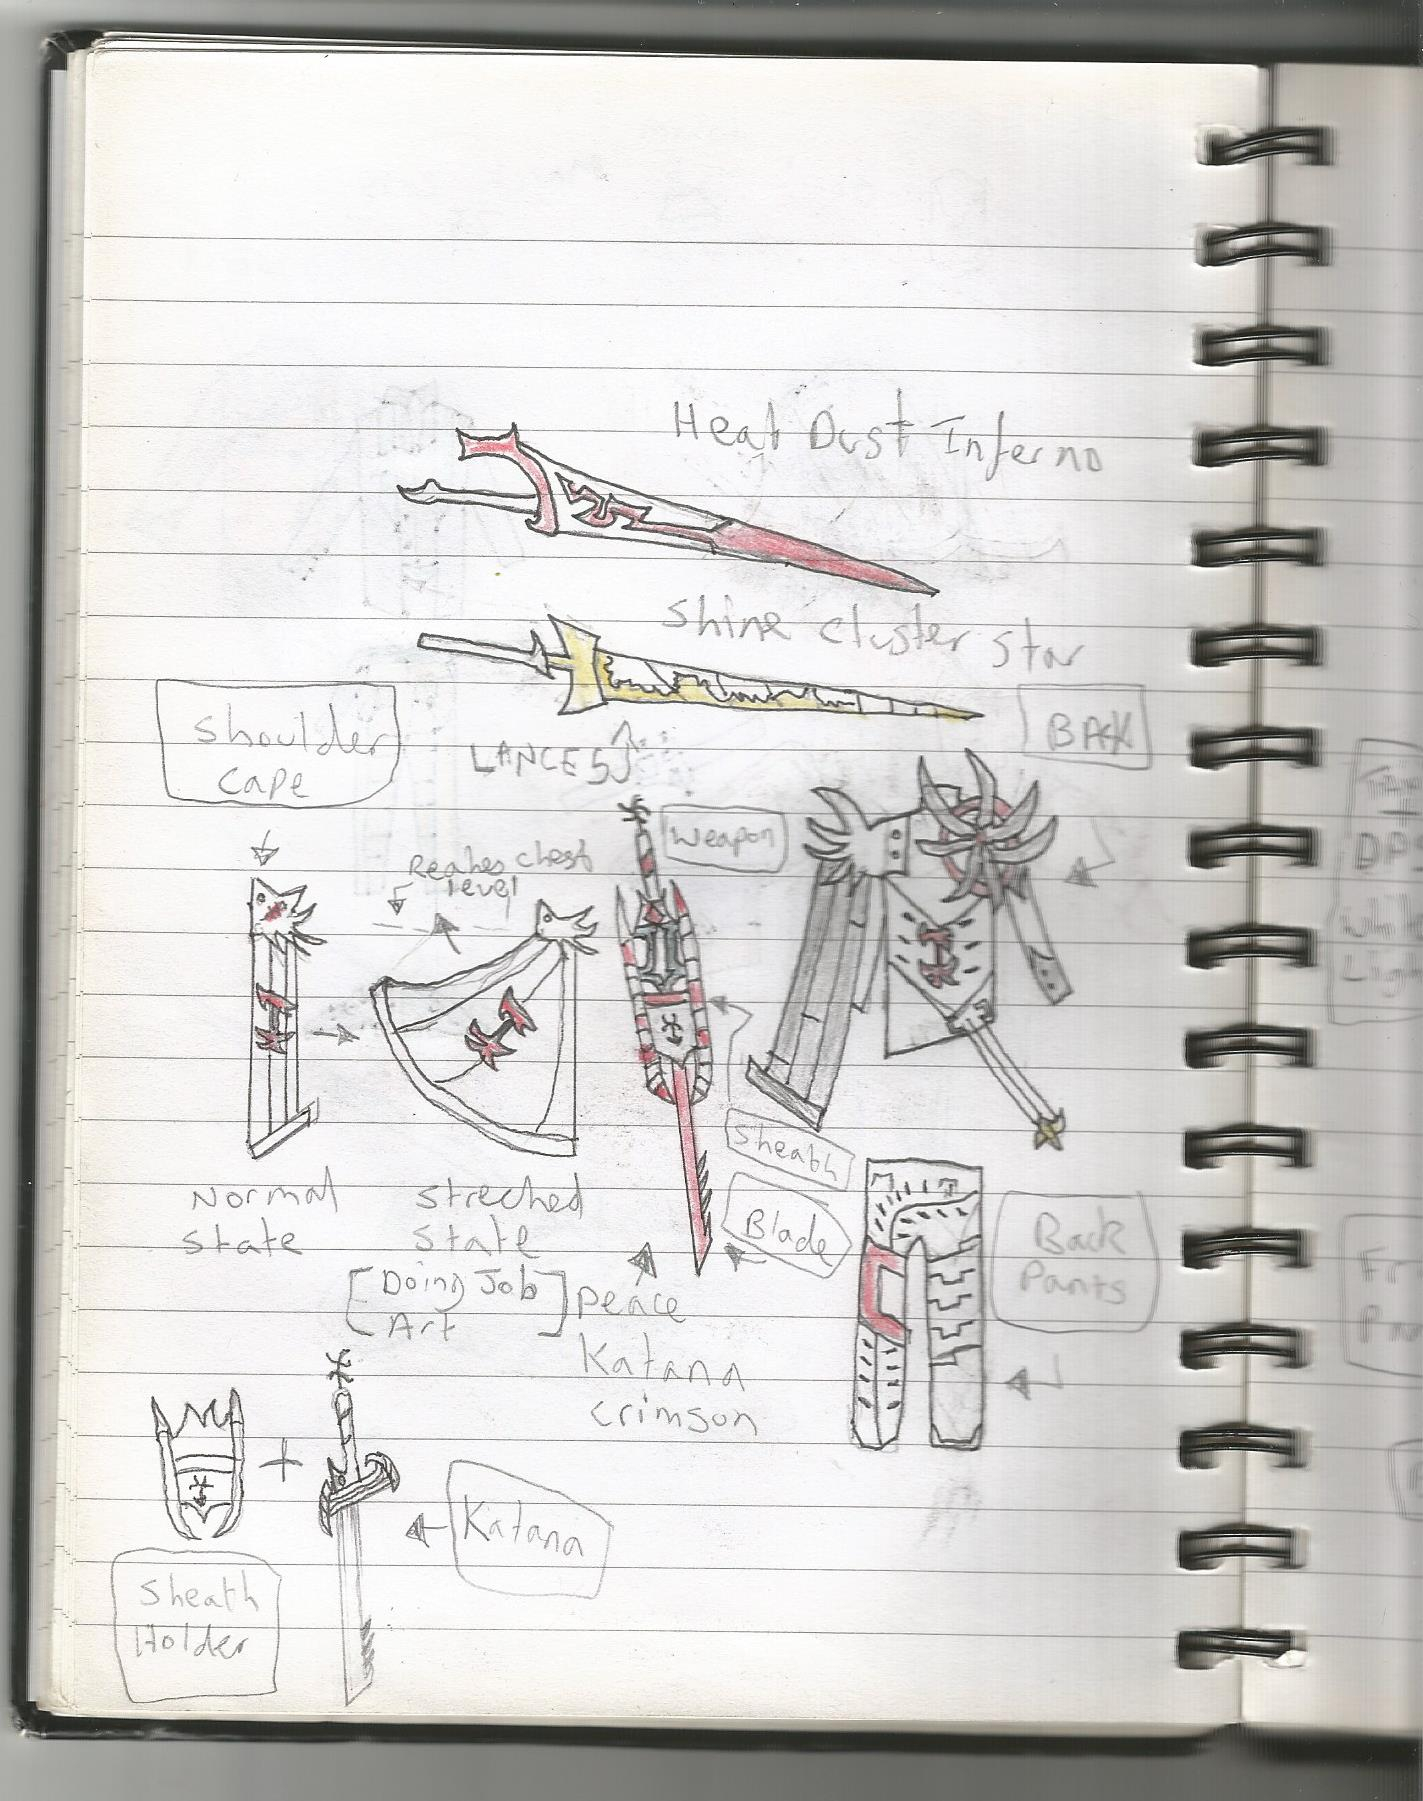 Heat Dust Inferno
Shine Cluster Star
LANCES
BACK
Shoulder
Cape
Weapon
Reahes chest
level
Sheath
Normal
State
Streched
State
[Doing Job
Art]
Blade
Back
Pants
Peace
Katana
Crimson
Katana
Sheath
Holder
+
DP
White
Ligh